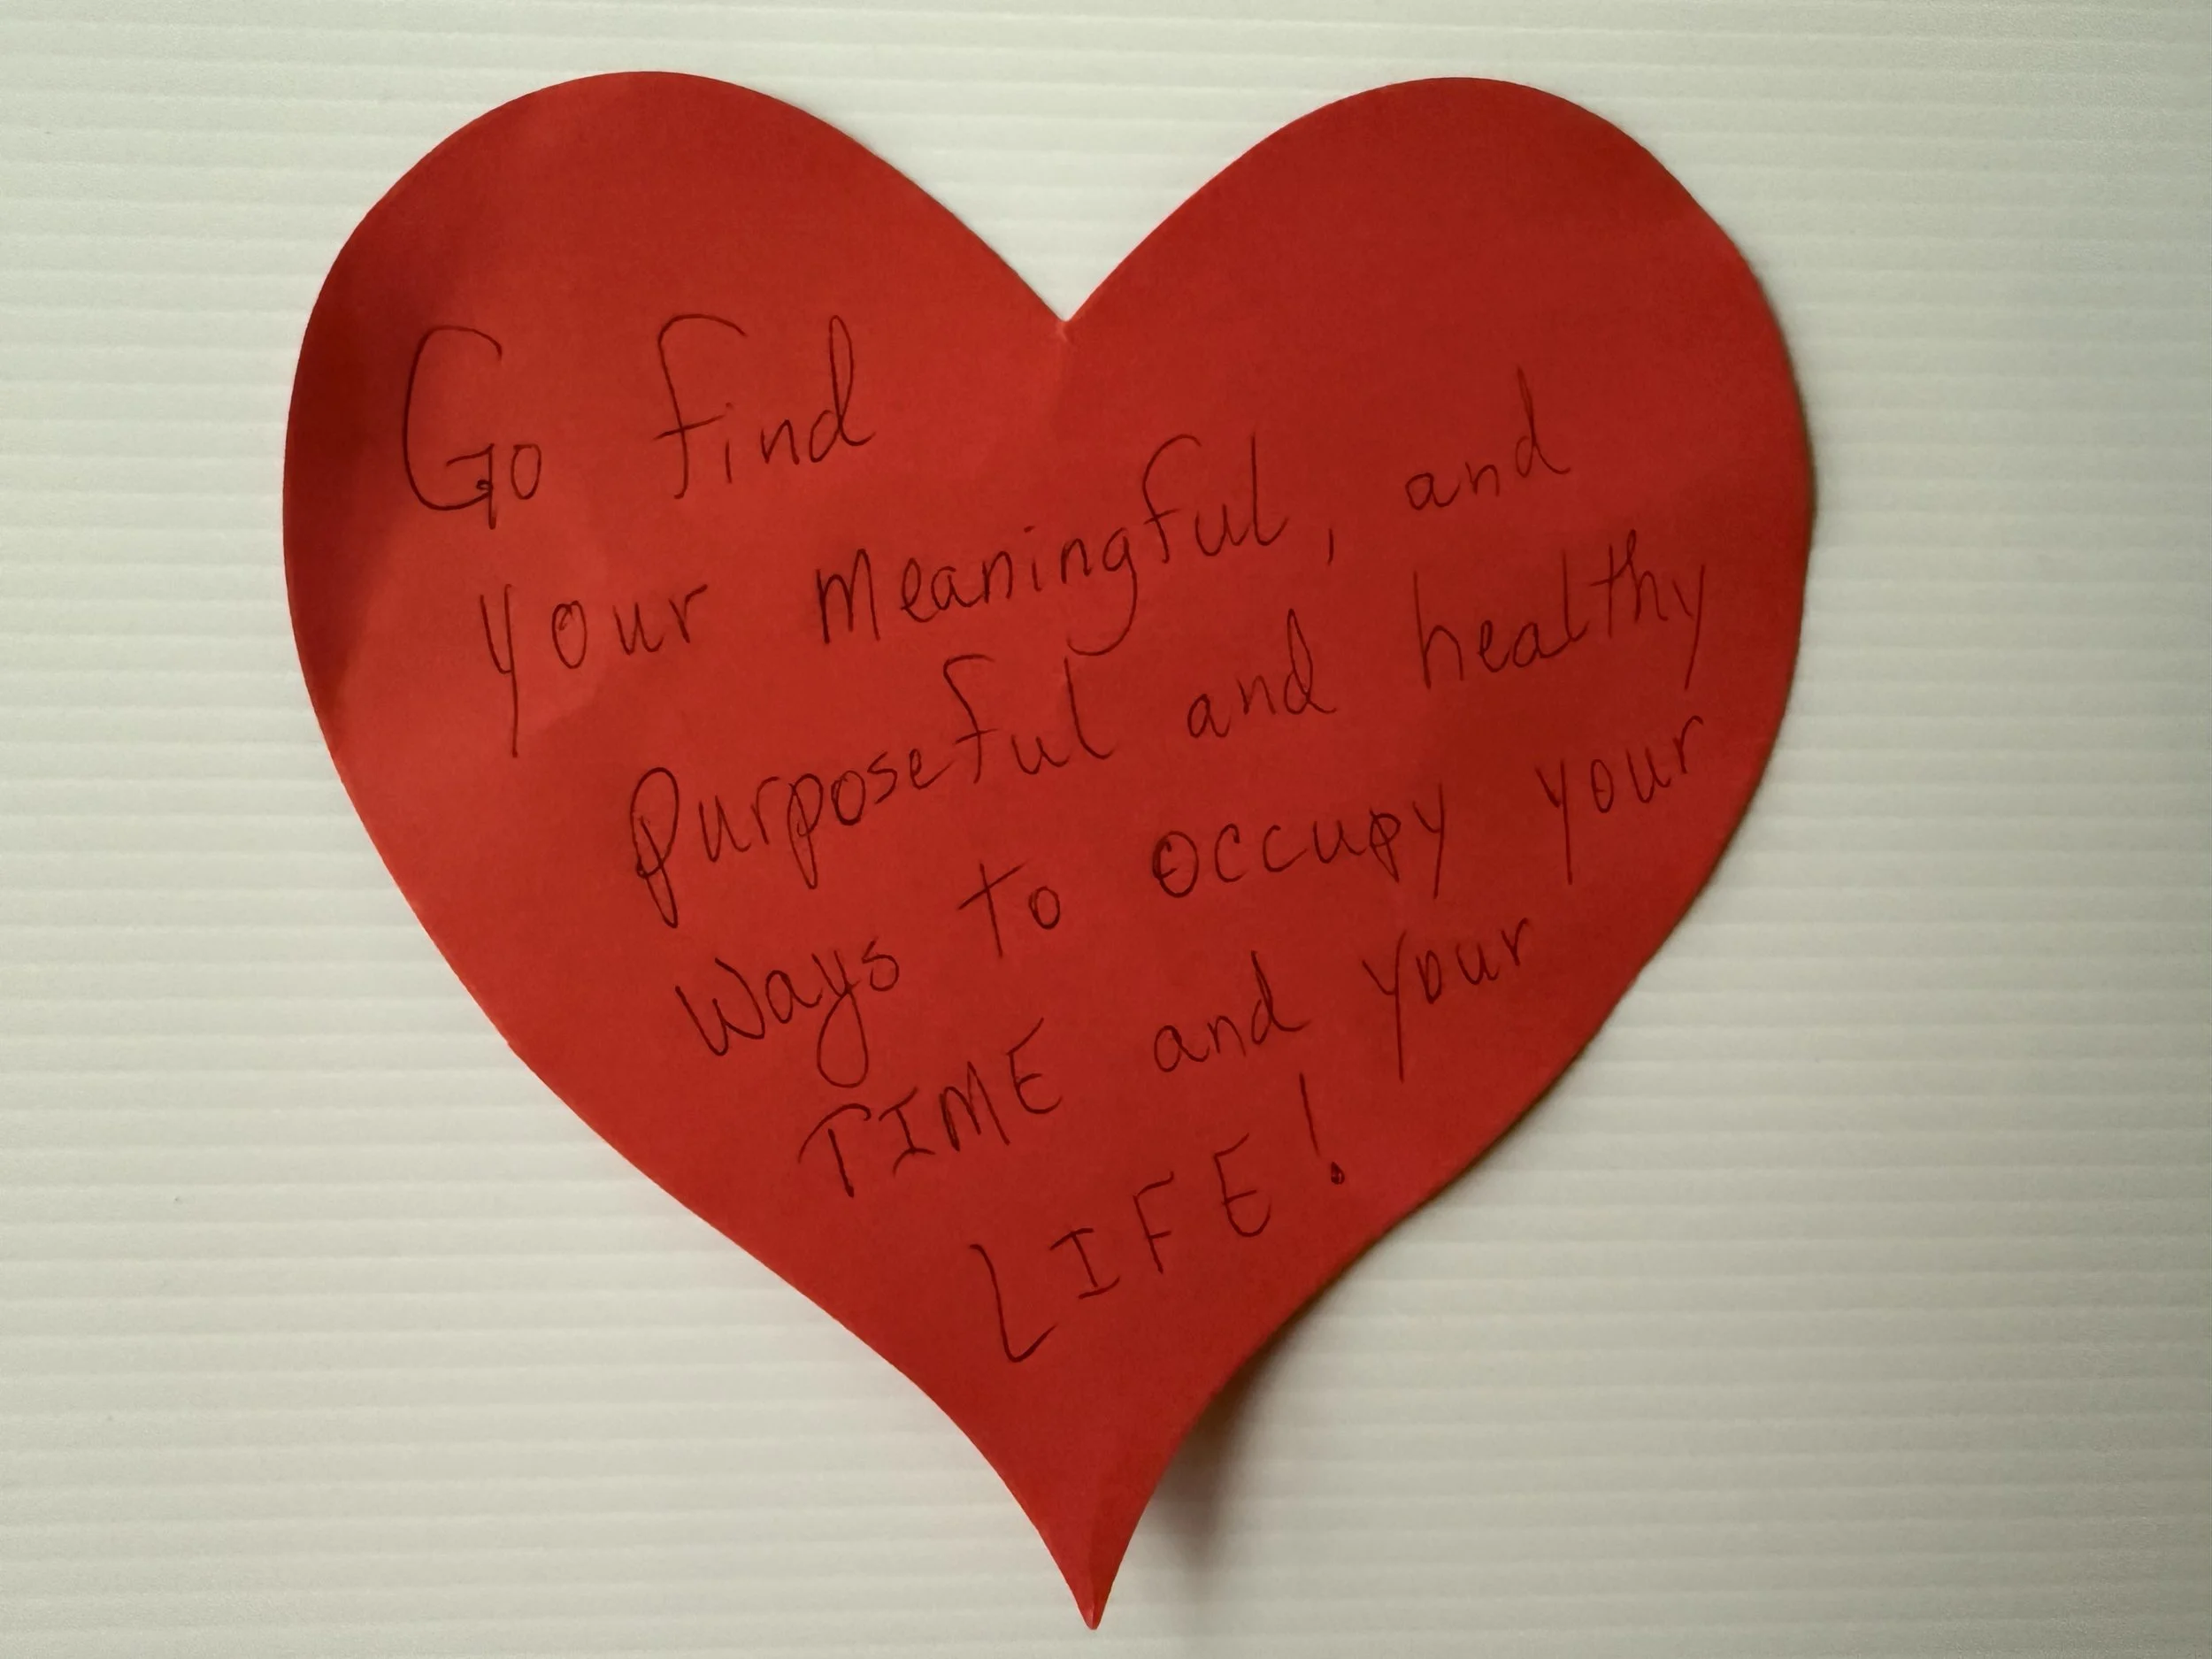 Go find
your meaningful, and
purposeful and healthy
ways to occupy your
TIME and your
LIFE!